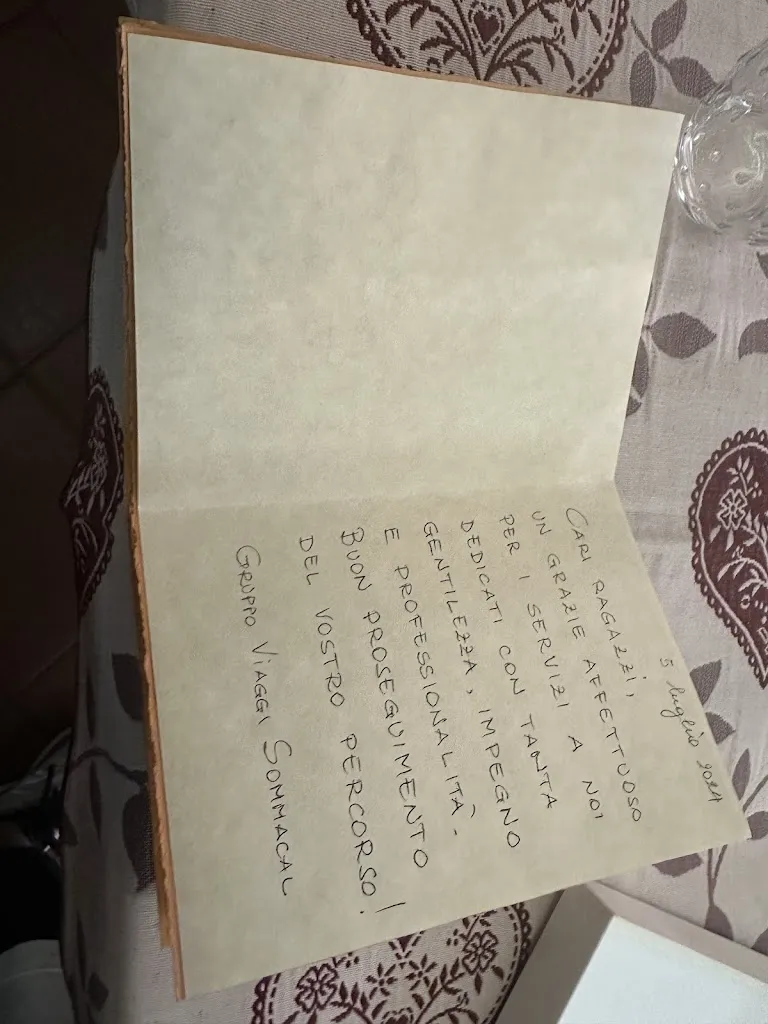 5 luglio 2024
CARI RAGAZZI,
UN GRAZIE AFFETTUOSO
PER I SERVIZI A NOI
DEDICATI CON TANTA
GENTILEZZA, IMPEGNO
E PROFESSIONALITÀ.
BUON PROSEGUIMENTO
DEL VOSTRO PERCORSO!
GRUPPO VIAGGI SOMMACAL